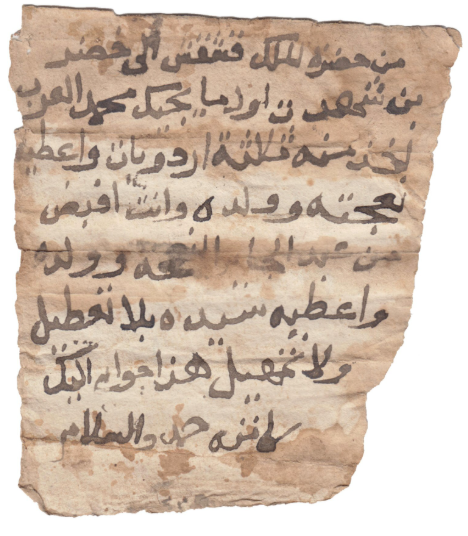 من حضرة الملك قشقش الى خضر
بن شهدت اوزما يجيك محمد العرب
اخذ منه ثلاثة اردويات واعطيه
نعجته وولده وانت اقبض
من عبد النعجة وولده
واعطيه سيده بلا تعطيل
ولا تمهيل هذا جوابي اليك
حمد والسلام